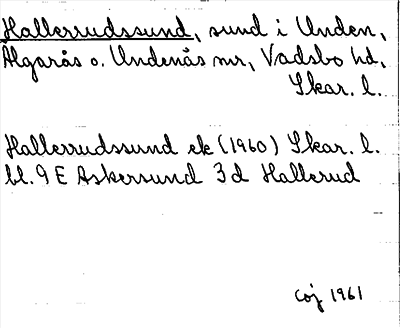 Hallerrudssund, sund i Unden,
Älgarås o. Undenäs snr, Vadsbo hd,
Skar. l.
Hallerrudssund ek (1960) Skar. l.
bl. 9 E Askersund 3 d Hallerud
1961